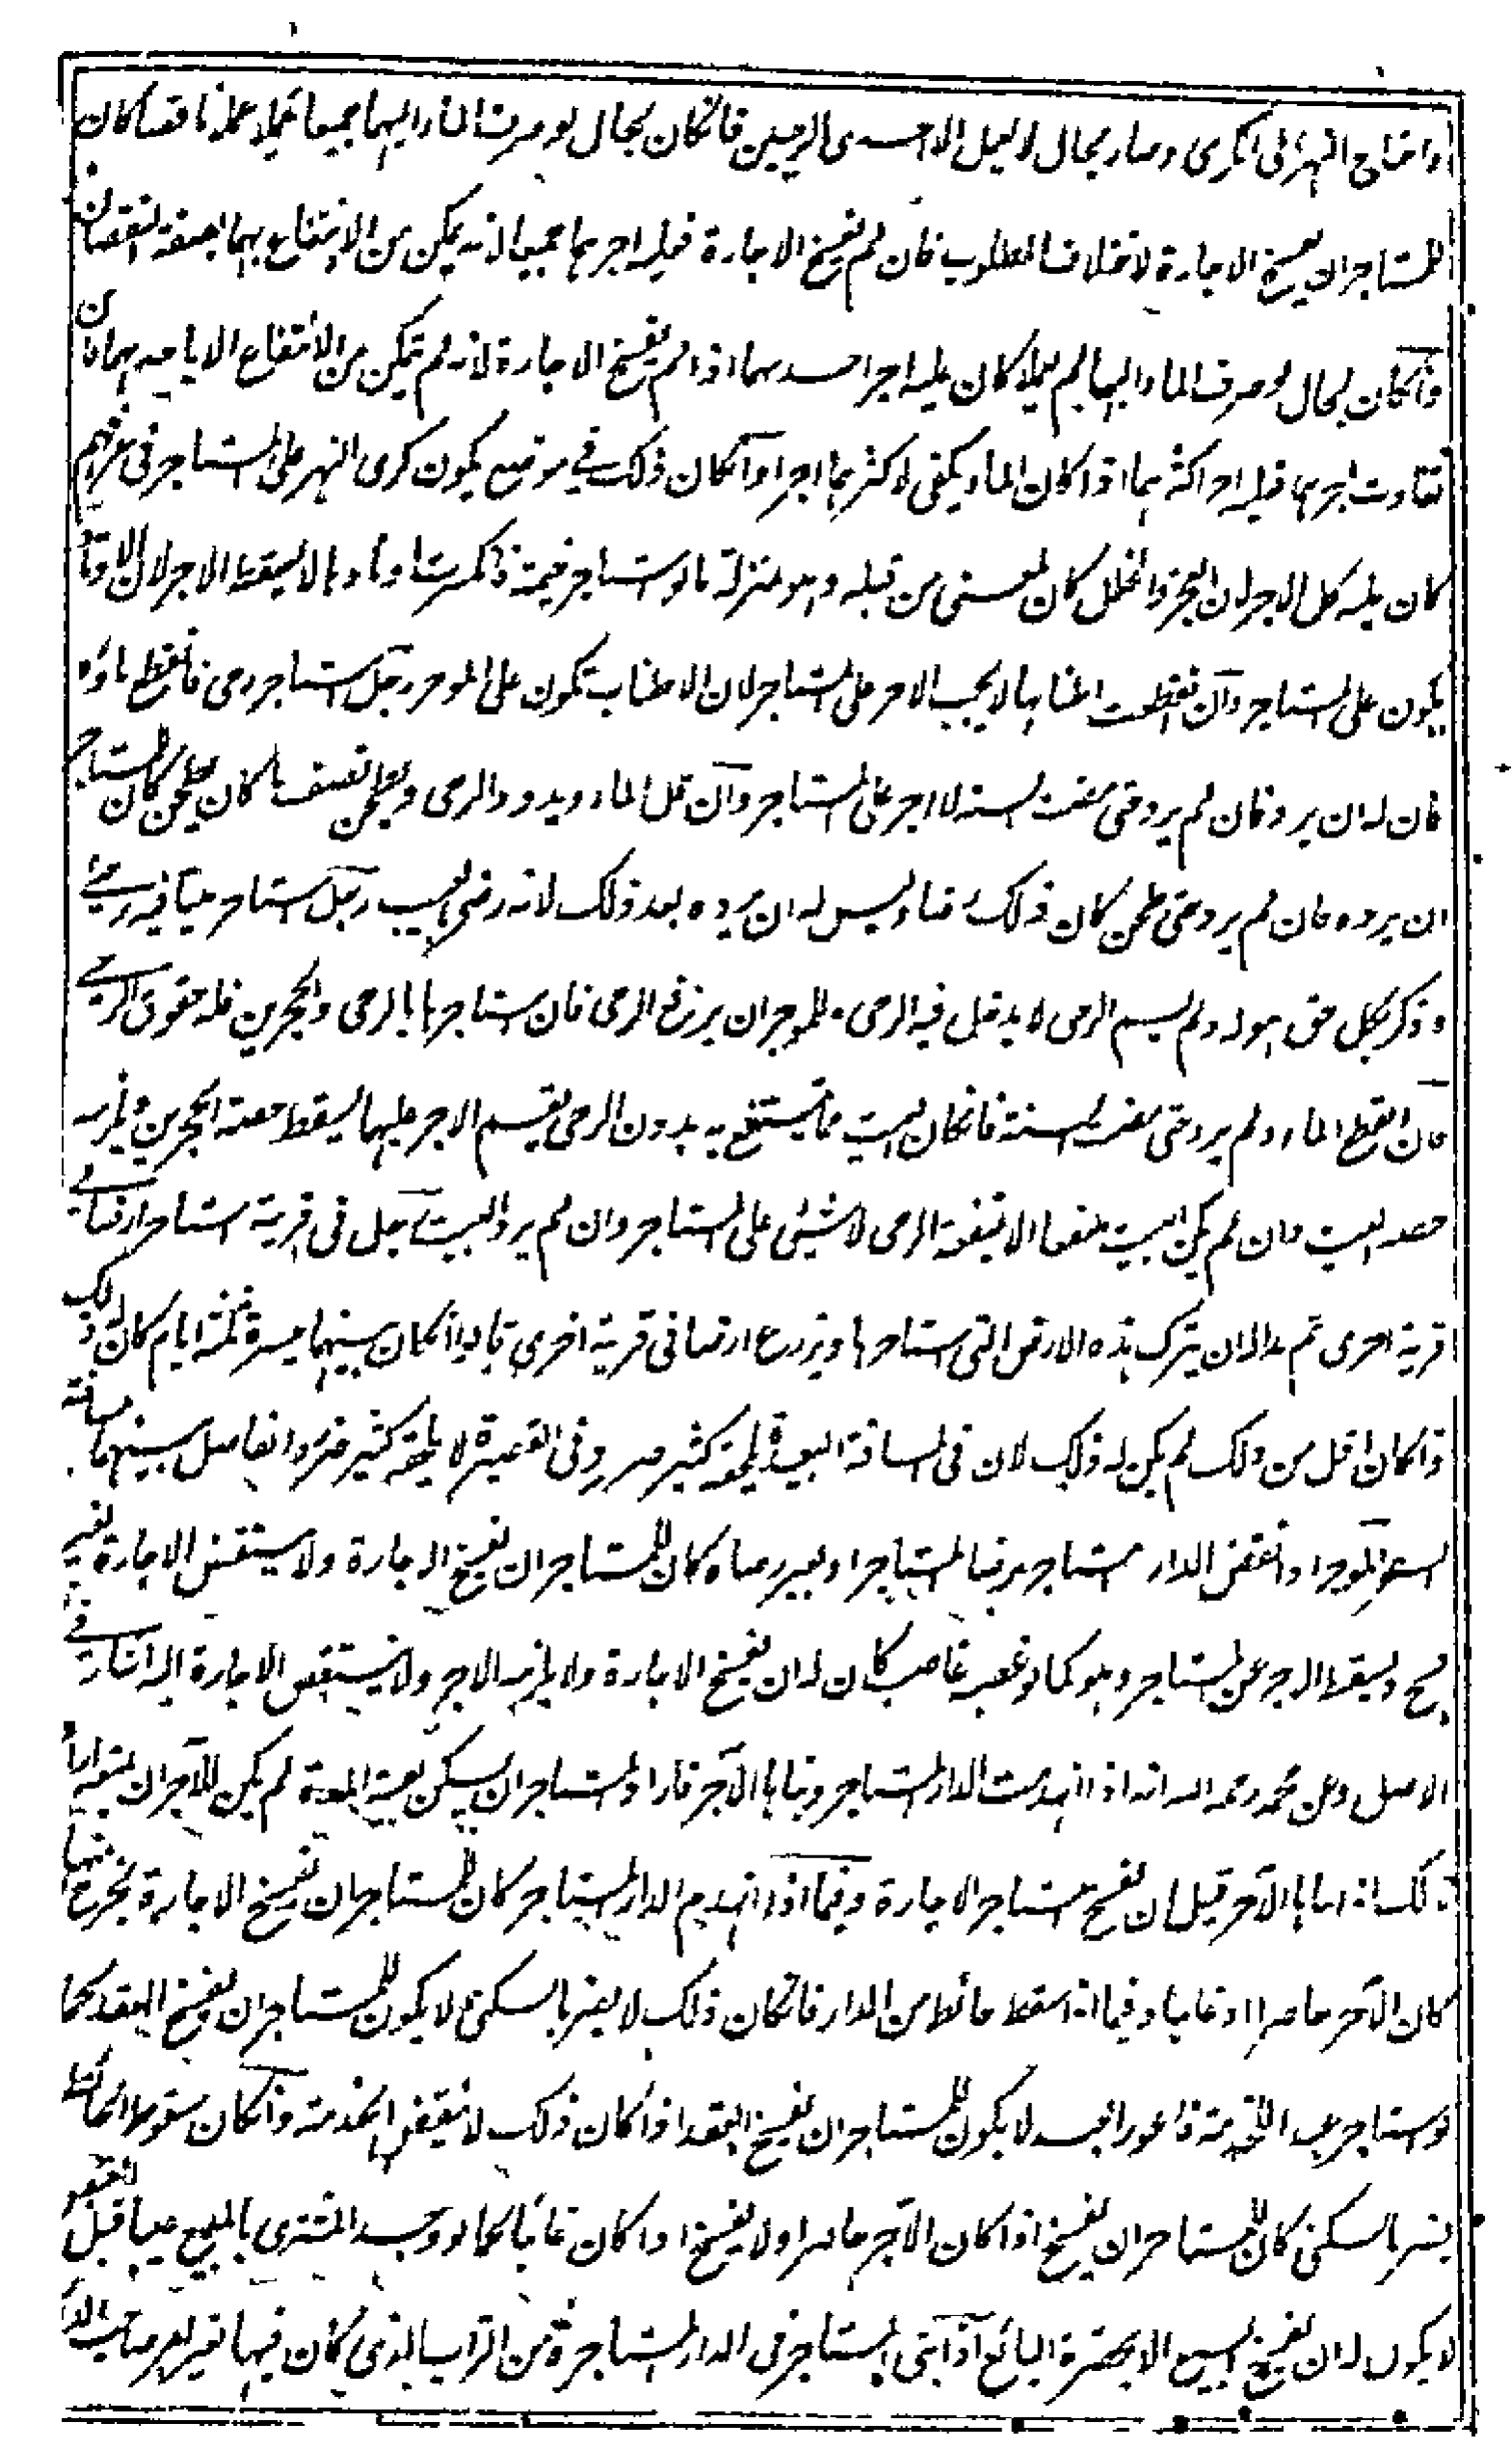 واحتاج النهر الى الكرى وصار بحال لا يعمل الا احدى الرحيين فانكان بحال لو صرف الماء اليهما جميعا عملا عملا ناقصا كان
للمستاجر ان يفسخ الاجارة لاختلاف المطلوب فان لم يفسخ الاجارة فعليه اجرهما جميعا لانه يمكن من الانتفاع بهما بصفة النقصان
وانكان بحال لو صرف الماء اليهما لم يعملا كان عليه اجر احدهما اذا لم يفسخ الاجارة لانه لم يتمكن من الانتفاع الا باحدهما فان
تفاوت اجرهما فعليه اجر اكثرهما اذا كان الماء يكفى لاكثرهما اجرا وانكان ذلك في موضع يكون كرى النهر على المستاجر فى عرفهم
كان عليه كل الاجر لان العجز والخلل كان لمعنى من قبله وهو بمنزلة ما لو استاجر خيمة فانكسرت اوتادها لا يسقط الاجر لان الاوتاد
يكون على المستاجر وان انقطعت اطنابها لا يجب الاجر على المستاجر لان الاطناب تكون على الموجر رجل استاجر رحى فانقطع ماؤه
فان له ان يرد فان لم يرد حتى مضت السنة لا اجر على المستاجر وان قل الماء ويدور الرحى ويطحن نصف ما كان يطحن كان للمستاجر
ان يرده فان لم يرد حتى طحن كان ذلك رضا وليس له ان يرده بعد ذلك لانه رضى بالعيب رجل استاجر بيتا فيه رحى
وذكر بكل حق هو له ولم يسم الرحى لا يدخل فيه الرحى وللموجر ان يرفع الرحى فان استاجرها بالرحى والحجرين فله حقوق الرحى
فان انقطع الماء ولم يرد حتى مضت السنة فانكان البيت مما يستنفع به بدون الرحى يقسم الاجر عليهما يسقط حصة الحجرين ويلزمه
حصة البيت وان لم يكن البيت منتفعا الا لمنفعة الرحى لا شيئ على المستاجر وان لم يرد البيت رجل فى قرية استاجر ارضا في
قرية اخرى ثم بدا له ان يترك هذه الارض التى استاجرها ويزرع ارضا فى قرية اخرى قالوا انكان بينهما مسيرة ثلثة ايام كان له ذلك
واكان اقل من ذلك لم يكن له ذلك لان فى المسافة البعيدة يلحقه كثير ضرر وفى القصيرة لا يلحقه كثير ضرر والفاصل بينهما مسافة
السفر الموجر اذا نقض الدار المستاجر برضا المستاجر او بغير رضاه كان للمستاجر ان يفسخ الاجارة ولا ينتقض الاجارة بغير
فسخ ويسقط الاجر عن المستاجر وهو كما لو غصبه غاصب كان له ان يفسخ الاجارة ولا يلزمه الاجر ولا ينتقض الاجارة اليه اشار في
الاصل وعن محمد رحمه الله انه اذا انهدمت الدار المستاجر وبناها الآجر فاراد المستاجر ان يسكن بقية المدة لم يكن للآجر ان يمنعه اراد
بذلك اذا بناها الآجر قبل ان يفسخ المستاجر الاجارة وفيما اذا انهدم الدار المستاجر كان للمستاجر ان يفسخ الاجارة ويخرج منها
كان الآجر حاضرا او غائبا وفيما اذا سقط حائط من الدار فانكان ذلك لا يضر بالسكنى لا يكون للمستاجر ان يفسخ العقد كما
لو استاجر عبدا للخدمة فاعور العبد لا يكون للمستاجر ان يفسخ العقد اذا كان ذلك لا ينقض الخدمة وانكان سقوط الحائط
يضر بالسكنى كان للمستاجر ان يفسخ اذا كان الآجر حاضرا ولا يفسخ اذا كان غائبا كما لو وجد المشترى بالمبيع عيبا قبل القبض
لا يكون له ان يفسخ البيع الا بحضرة البائع اذا بنى المستاجر فى الدار المستاجرة من التراب الذى كان فيها بغير امر صاحب الدار